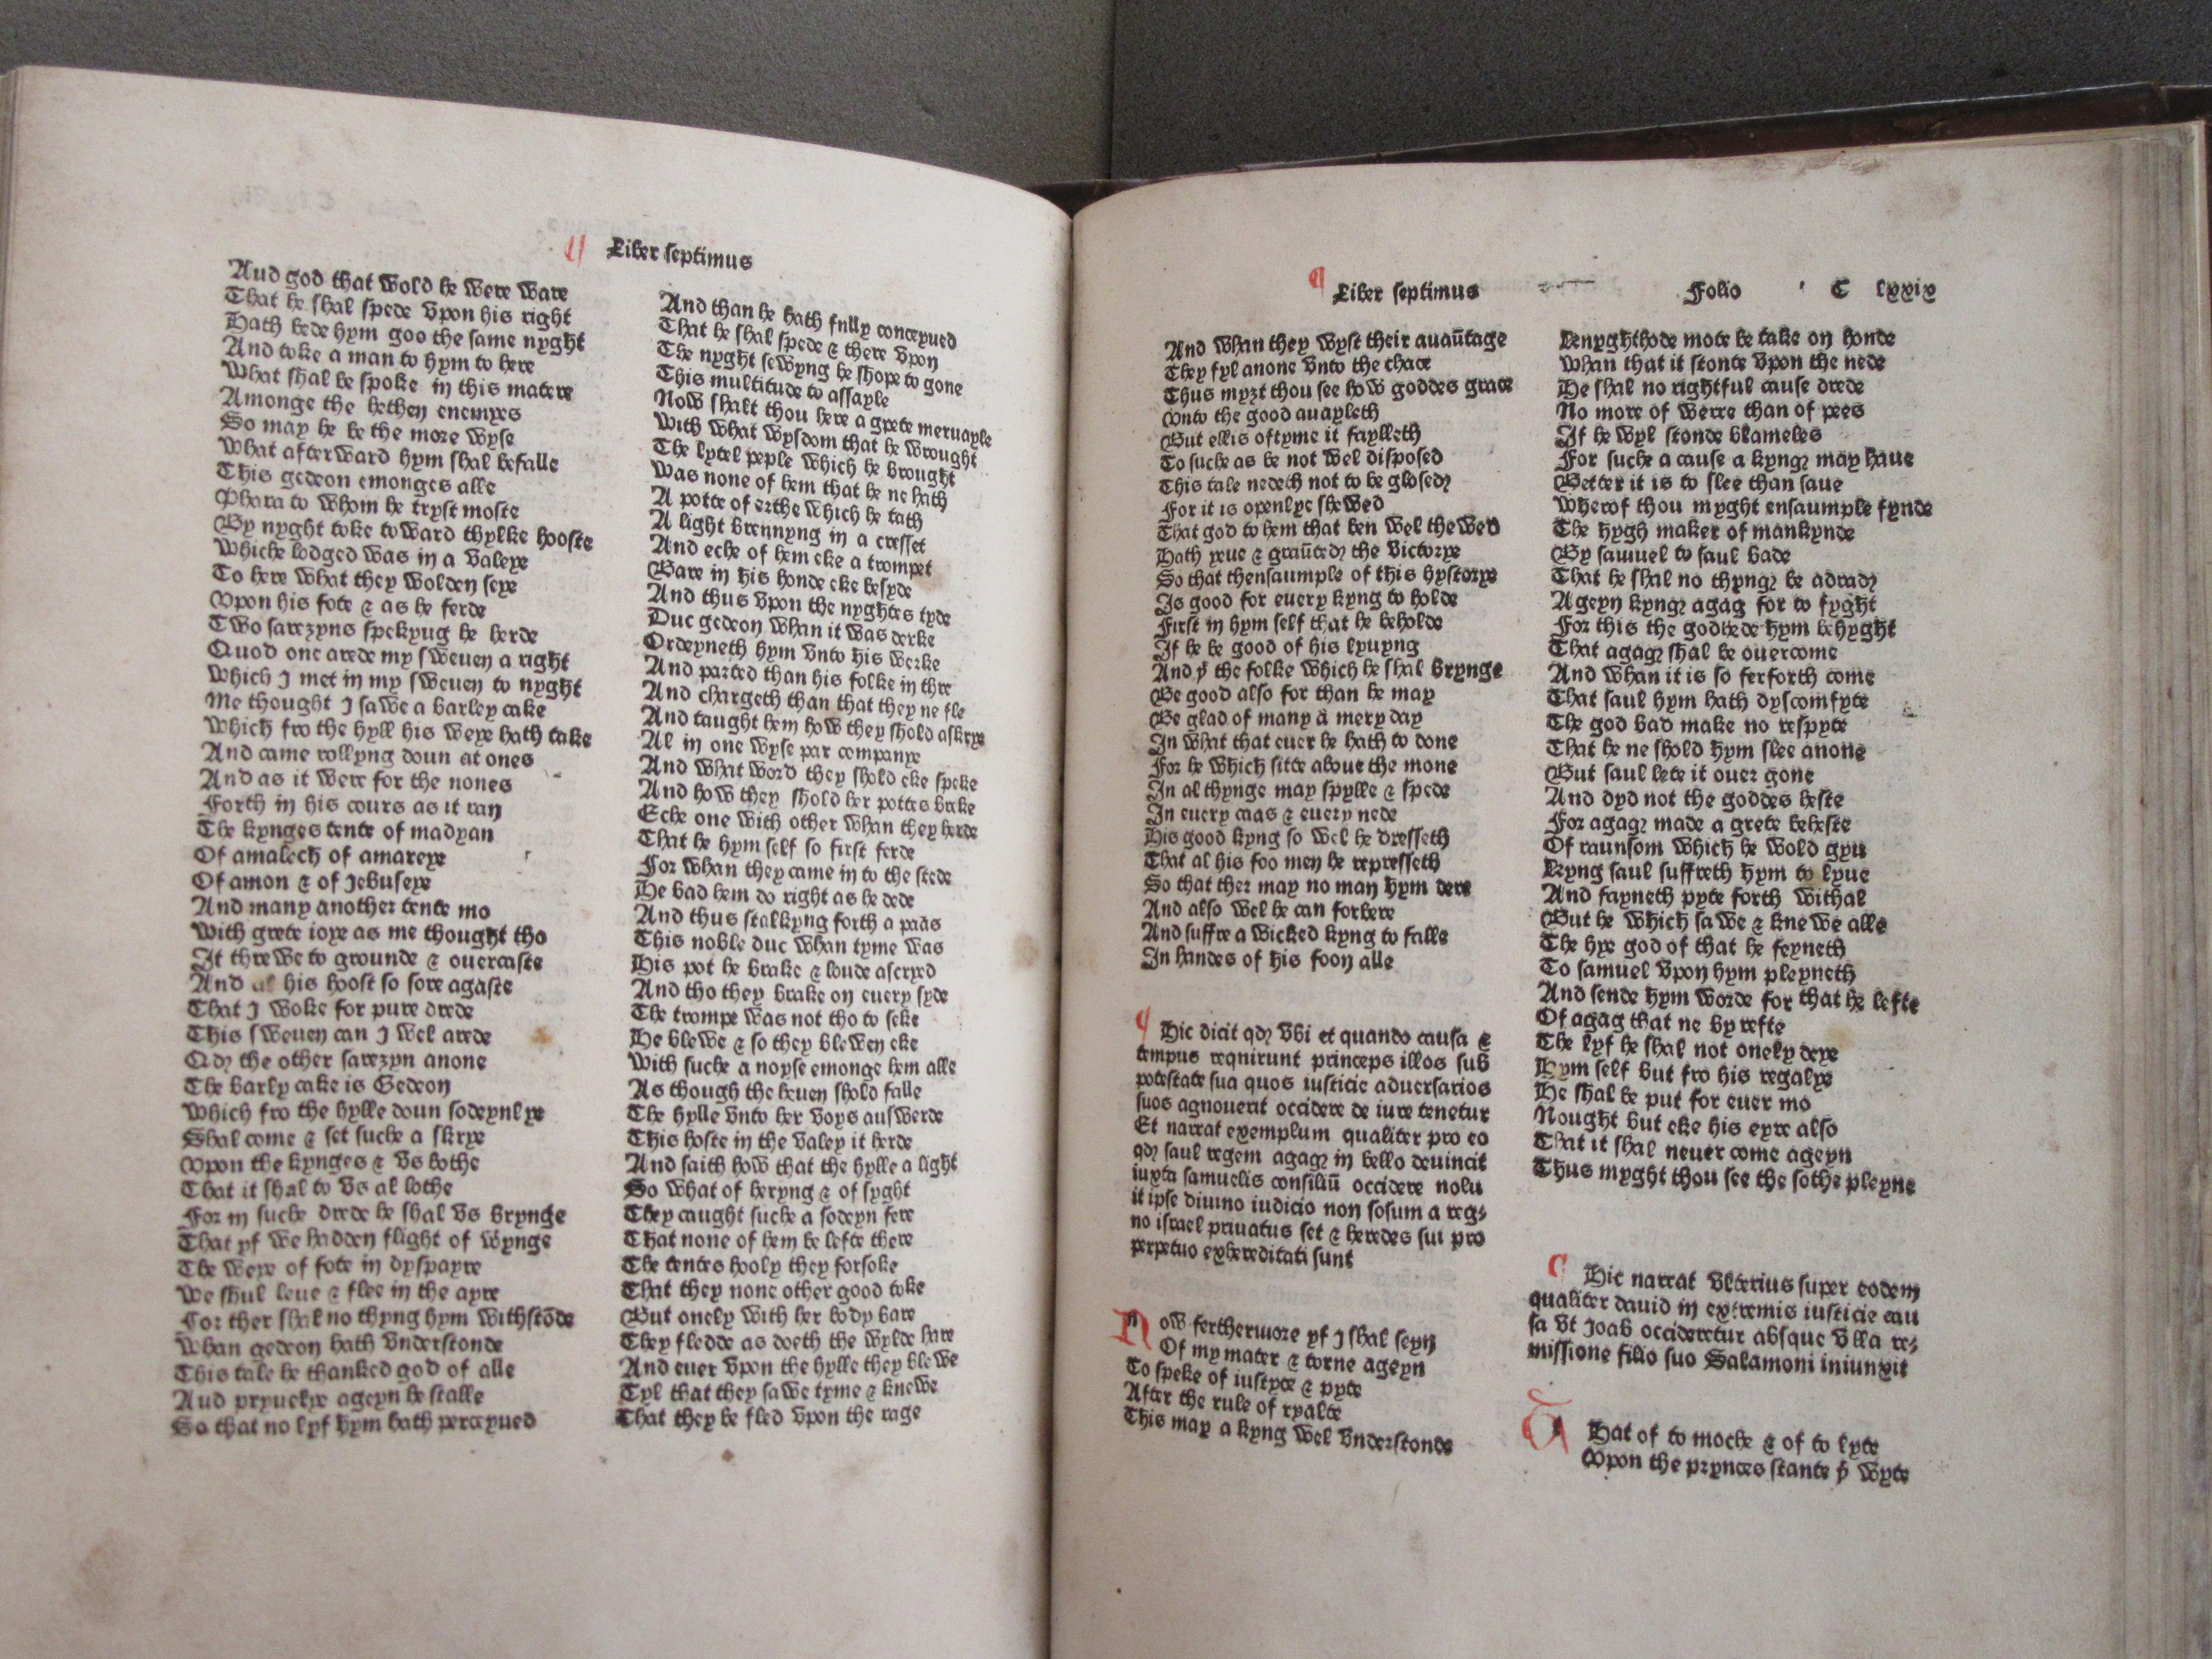 Liber septimus
And god that wold he were ware
That he shal spede vpon his right
Hath bede hym goo the same nyght
And toke a man to hym to here
What shal be spoke in this matere
Amonge the hethen enemyes
So may he be the more wyse
What afterward hym shal befalle
This gedeon emonges alle
Phara to whom he tryst moste
By nyght toke toward thylke hooste
Whiche lodged was in a valeye
To here what they wolden seye
Vpon his fote & as he ferde
Two sarezyns spekyug he herde
Quod one arede my sweuen a right
Which I met in my sweuen to nyght
Me thought I sawe a barley cake
Which fro the hyll his weye hath take
And came rollyng doun at ones
And as it were for the nones
Forth in his cours as it ran
The kynges tente of madyan
Of amalech of amareye
Of amon & of Jebuseye
And many another tente mo
With grete ioye as me thought tho
It threwe to grounde & ouercaste
And al his hoost so sore agaste
That I woke for pure drede
This sweuen can I wel arede
Qd the other sarezyn anone
The barly cake is Gedeon
Which fro the hylle doun sodeynlye
Shal come & set suche a skrye
Vpon the kynges & vs bothe
That it shal to vs al lothe
For in suche drede he shal vs brynge
That yf we hadden flight of wynge
The weye of fote in dyspayre
We shul leue & flee in the ayre
For ther shal no thyng hym withstōde
Whan gedeon hath vnderstonde
This tale he thanked god of alle
And pryuelye ageyn he stalle
So that no lyf hym hath perceyued
And than he hath fully conceyued
That he shal spede & there vpon
The nyght sewyng he shope to gone
This multitude to assayle
Now shalt thou here a grete meruayle
With what wysdom that he wrought
The lytel peple which he brought
Was none of hem that he ne hath
A potte of erthe which he tath
A light brennyng in a cresset
And eche of hem eke a trompet
Bare in his honde eke besyde
And thus vpon the nyghtes tyde
Duc gedeon whan it was derke
Ordeyneth hym vnto his werke
And parted than his folke in thre
And chargeth than that they ne fle
And taught hem how they shold askrye
Al in one wyse par companye
And what word they shold eke speke
And how they shold her pottes breke
Eche one with other whan they herde
That he hym self so first ferde
For whan they came in to the stede
He bad hem do right as he dede
And thus stalkyng forth a paas
This noble duc whan tyme was
His pot he brake & loude ascryed
And tho they brake on euery syde
The trompe was not tho to seke
He blewe & so they blewen eke
With suche a noyse emonge hem alle
As though the heuen shold falle
The hylle vnto her voys answerde
This hoste in the valey it herde
And saith how that the hylle a light
So what of heryng & of syght
They caught suche a sodeyn fere
That none of hem be lefte there
The tentes hooly they forsoke
That they none other good toke
But onely with her body bare
They fledde as doeth the wylde hare
And euer vpon the hylle they blewe
Tyl that they sawe tyme & knewe
That they be fled vpon the rage
Liber septimus Folio C lxxix
And whan they wyst their auaūtage
They fyl anone vnto the chace
Thus myzt thou see how goddes grace
Vnto the good auayleth
But ellis oftyme it faylleth
To suche as be not wel disposed
This tale nedeth not to be glosed
For it is openlye shewed
That god to hem that ben wel thewed
Hath yeue & graūted the victorye
So that thensaumple of this hystorye
Is good for euery kyng to holde
First in hym self that he beholde
If he be good of his lyuyng
And yͭ the folke which he shal brynge
Be good also for than he may
Be glad of many a mery day
In what that euer he hath to done
For he which sitte aboue the mone
In al thynge may spylle & spede
In euery caas & euery nede
His good kyng so wel he dresseth
That al his foo men he represseth
So that ther may no man hym dere
And also wel he can forbere
And suffre a wicked kyng to falle
In handes of his foon alle
Hic dicit qd vbi et quando causa &
tempus reqnirunt princeps illos sub
potestate sua quos iusticie aduersarios
suos agnouerit occidere de iure tenetur
Et narrat exemplum qualiter pro eo
qd saul regem agag in bello deuincit
iuxta samuelis consiliū occidere nolu
it ipse diuino iudicio non sosum a reg⸗
no israel priuatus set & heredes sui pro
perpetuo exhereditati sunt
Now ferthermore yf I shal seyn
Of my mater & torne ageyn
To speke of iustyce & pyte
After the rule of ryalte
This may a kyng wel vnderstonde
Kenyghthode mote be take on honde
Whan that it stonte vpon the nede
He shal no rightful cause drede
No more of werre than of pees
If he wyl stonde blameles
For suche a cause a kyng may haue
Better it is to slee than saue
Wherof thou myght ensaumple fynde
The hygh maker of mankynde
By samuel to saul bade
That he shal no thyng be adrad
Ageyn kyng agag for to fyght
For this the godhede hym behyght
That agag shal be ouercome
And whan it is so ferforth come
That saul hym hath dyscomfyte
The god bad make no respyte
That he ne shold hym slee anone
But saul lete it ouer gone
And dyd not the goddes heste
For agag made a grete beheste
Of raunsom which he wold gyu
Kyng saul suffreth hym to lyue
And fayneth pyte forth withal
But he which sawe & knewe alle
The hye god of that he feyneth
To samuel vpon hym pleyneth
And sende hym worde for that he lefte
Of agag that ne by refte
The lyf he shal not onely deye
Hym self but fro his regalye
He shal be put for euer mo
Nought but eke his eyre also
That it shal neuer come ageyn
Thus myght thou see the sothe pleyne
Hic narrat vlterius super eodem
qualiter dauid in extremis iusticie cau
sa vt Joab occideretur absque vlla re⸗
missione filio suo Salamoni iniunxit
That of to moche & of to lyte
Vpon the prynces stante yͭ wyte